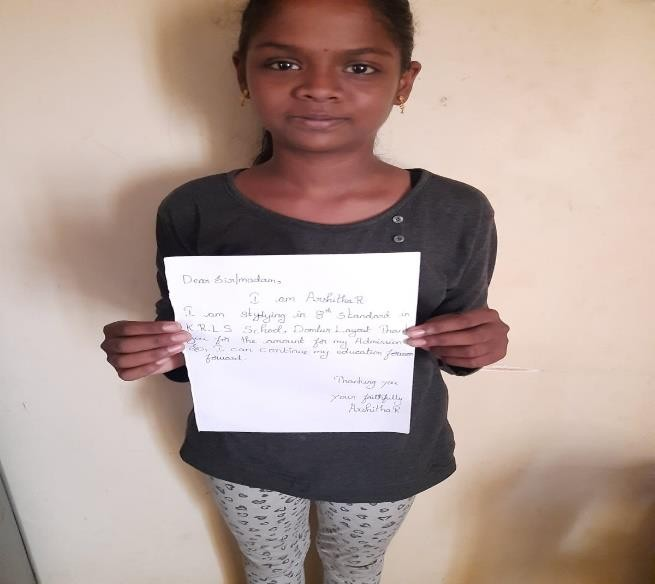 Dear Sir/madam,
I am Arshitha R
I am stylying in 8th Standard in
K.R.L.S School, Domlur Layout Thank
you for the amount for my Admission
so, I can continue my education forwom
forward.
Thanking you
your faithfully
Arshitha R